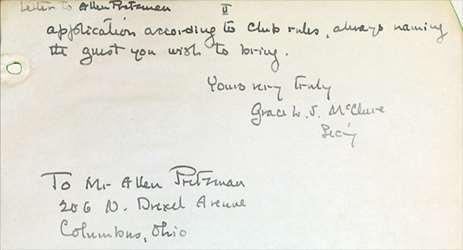 Letter to Allen Pretzman II
application according to club rules, always naming
the guest you wish to bring.
Yours very truly
Grace L. J. McClure
Sec'y
To Mr Allen Pretzman
206 N. Drexel Avenue
Columbus, Ohio